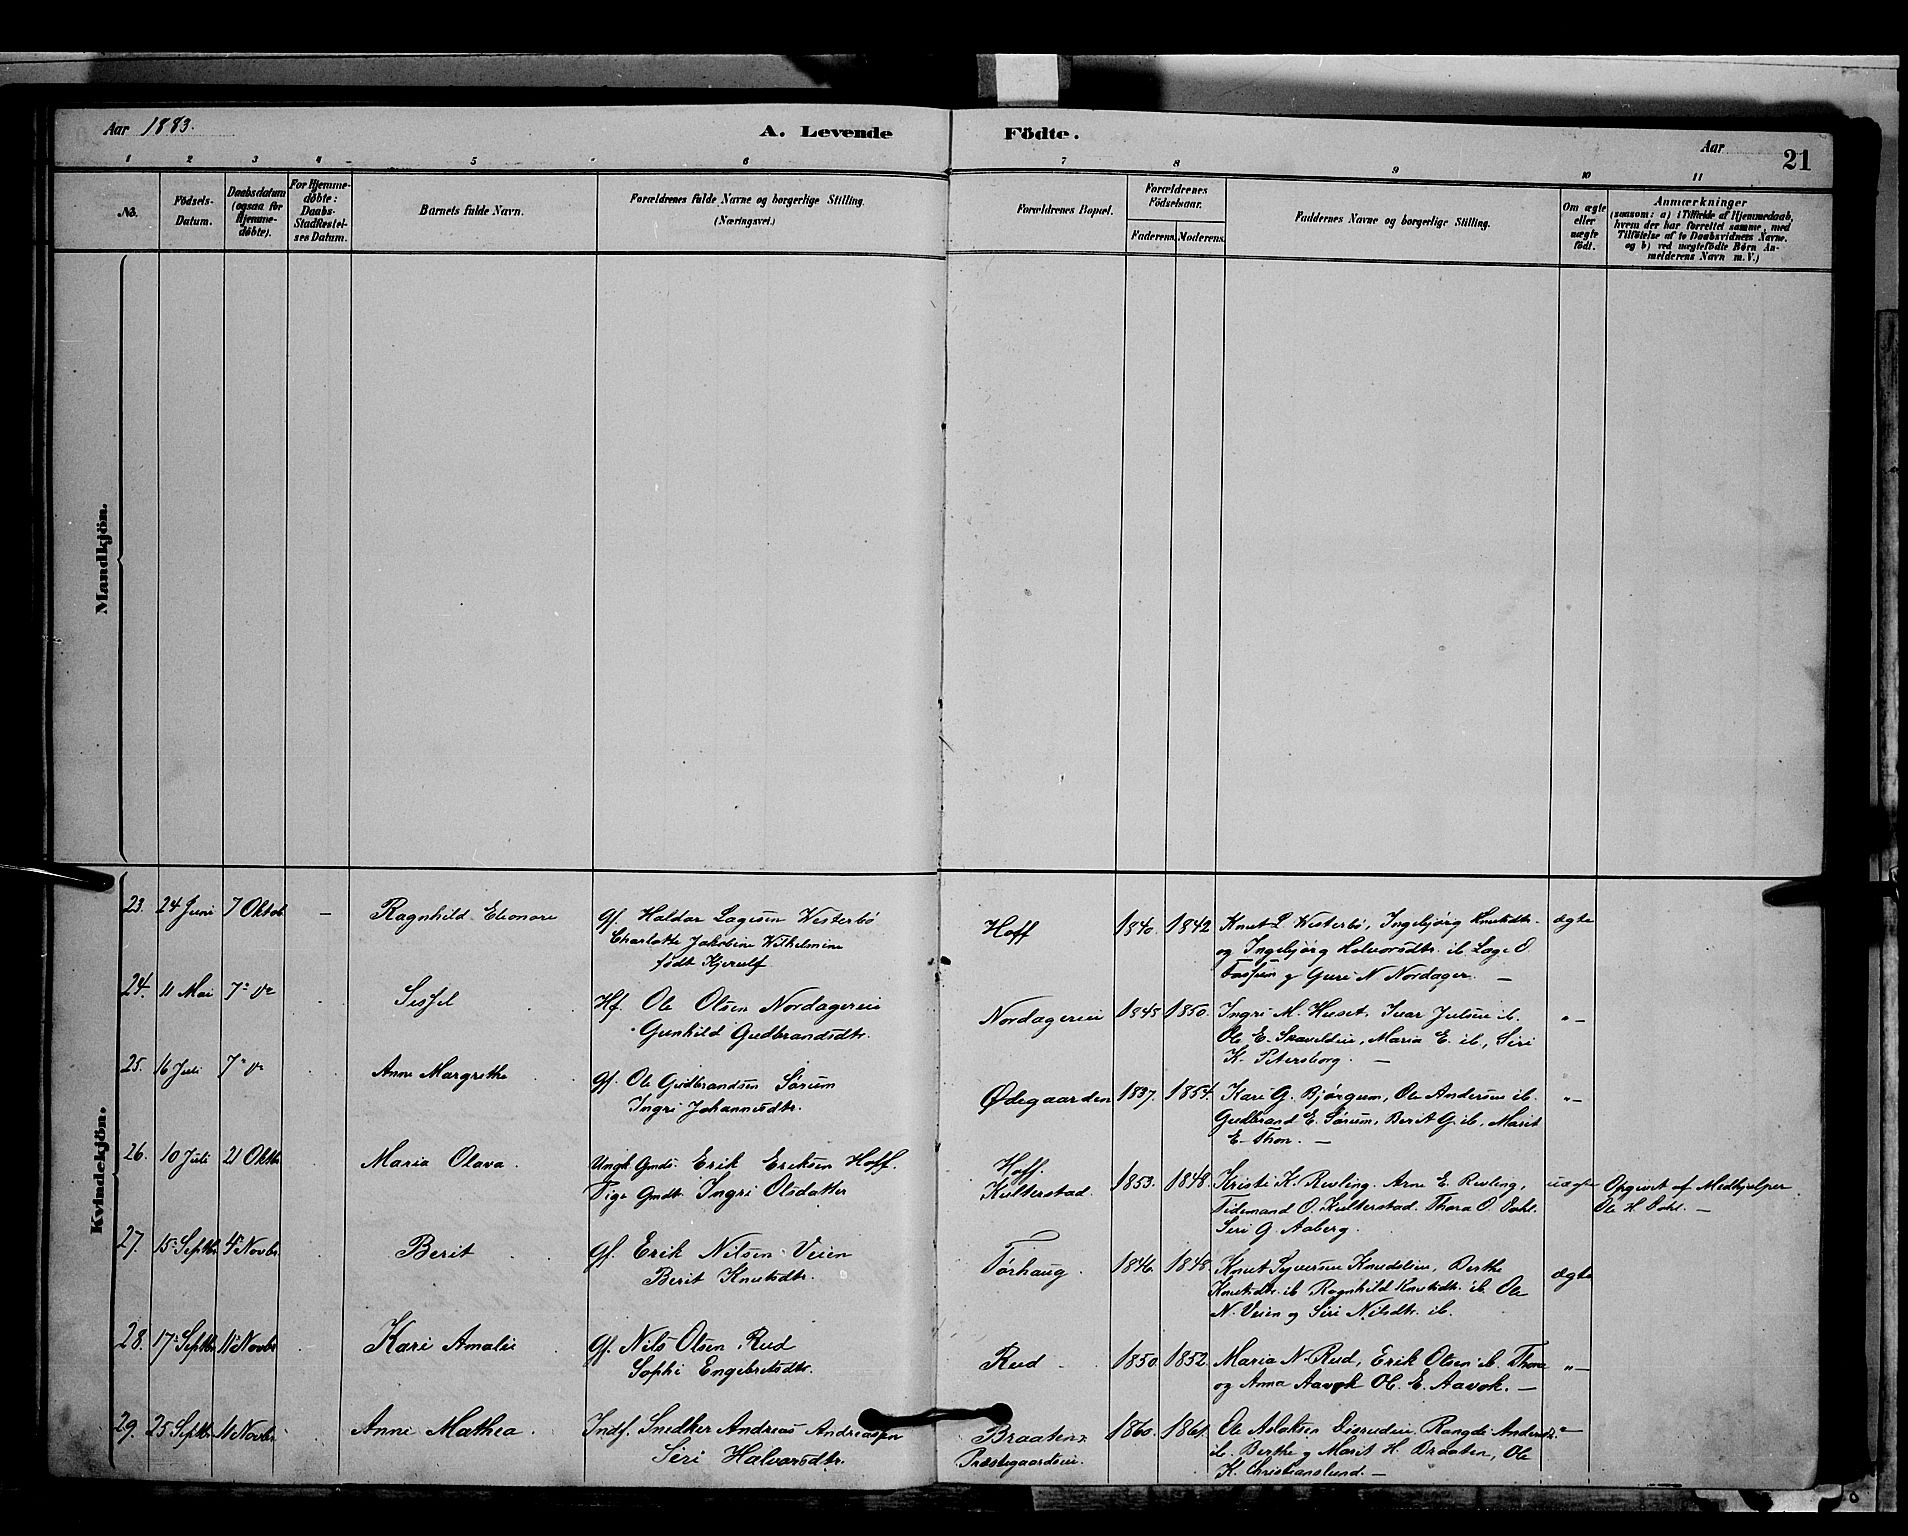 Aar 1883.
A. Levende Födte.
Aar
21
1 2 3 4 5 6 7 8 9 10 11
No.
Födsels-Datum.
Daabsdatum (ogsaa for Hjemme-döbte).
For Hjemme-döbte: Daabs-Stadfæstel-ses Datum.
Barnets fulde Navn.
Forældrenes fulde Navne og borgerlige Stilling. (Næringsvei.)
Forældrenes Bopæl.
Forældrenes Födselsaar.
Faderens. Moderens.
Faddernes Navne og borgerlige Stilling.
Om ægte eller uægte födt.
Anmærkninger
(saasom: a) i Tilfælde af Hjemmedaab,
hvem der har forrettet samme, med
Tilföielse af to Daabsvidners Navne,
og b) ved uægtefödte Börn An-
melderens Navn m. V.)
Mandkjön.
Kvindekjön.
23. 24 Juni 7 Oktob – Ragnhild Eleonore Gf. Haldor Lagesen Westerbø
Charlotte Jakobine Wilhelmine
født Kjerulf
Hoff 1840. 1842 Knut L Westerbø, Ingebjørg Knutsdtr.
og Ingebjørg Halvorsdtr. ib. Lage O
Fossum og Guri N Nordager. –
ægte
24. 11 Mai 7de do Sissel Hf. Ole Olsen Nordagereie
Gunhild Gudbrandsdtr.
Nordagereie 1845 1850. Ingri M. Huset, Ivar Julsen ib.
Ole E. Maria E. ib., Siri
K. Petersborg. –
"–
25. 16 Juli 7de do Anne Margrethe Gf. Ole Gudbrandsen Sørum
Ingri Johannesdtr.
Ødegaarden 1837. 1854. Kari G. Bjørgum, Ole Andersen ib.
Gudbrand E. Sørum, Berit G. ib. Marit
E. Thon. –
"–
26. 10 Juli 21 Oktbr Maria Olava. Ungk. Gmds. Erik Eriksen Hoff.
Pige Gmdt. Ingri Olsdatter
Hoff.
Kulterstad. 1853. 1848. Kristi K. Revling. Arne E. Revling,
Tidemand O. Kulterstad. Thora O. Dahl.
Siri G. Aaberg.
uægte Opgivet af Medhjælper
Ole H. Dahl. –
27. 15 Septbr 4de Novbr Berit Gf. Erik Nilsen Veien
Berit Knutsdtr.
Tørhaug. 1846. 1848. Knut Syversen Berthe
Knutsdtr. ib. Ragnhild Knutsdtr. ib. Ole
N. Veien og Siri Nilsdtr. ib.
ægte
28. 17 Septbr 11 Novbr Kari Amalie Gf. Nils Olsen Rud
Sophi Engebretsdtr.
Rud 1850. 1852. Maria N. Rud, Erik Olsen ib. Thora
og Anna Aavok Ol. E. Aavok. –
"–
29. 25 Septbr 11 Novbr Anne Mathea. Indf. Snedker Andreas Andreassen
Siri Halvorsdtr.
Braaten
Præstegaardseie. 1860. 1861. Ole Aslaksen Rangdi Andersdtr.
ib. Berthe og Marit H. Braaten, Ole
K. Christianslund. –
"–